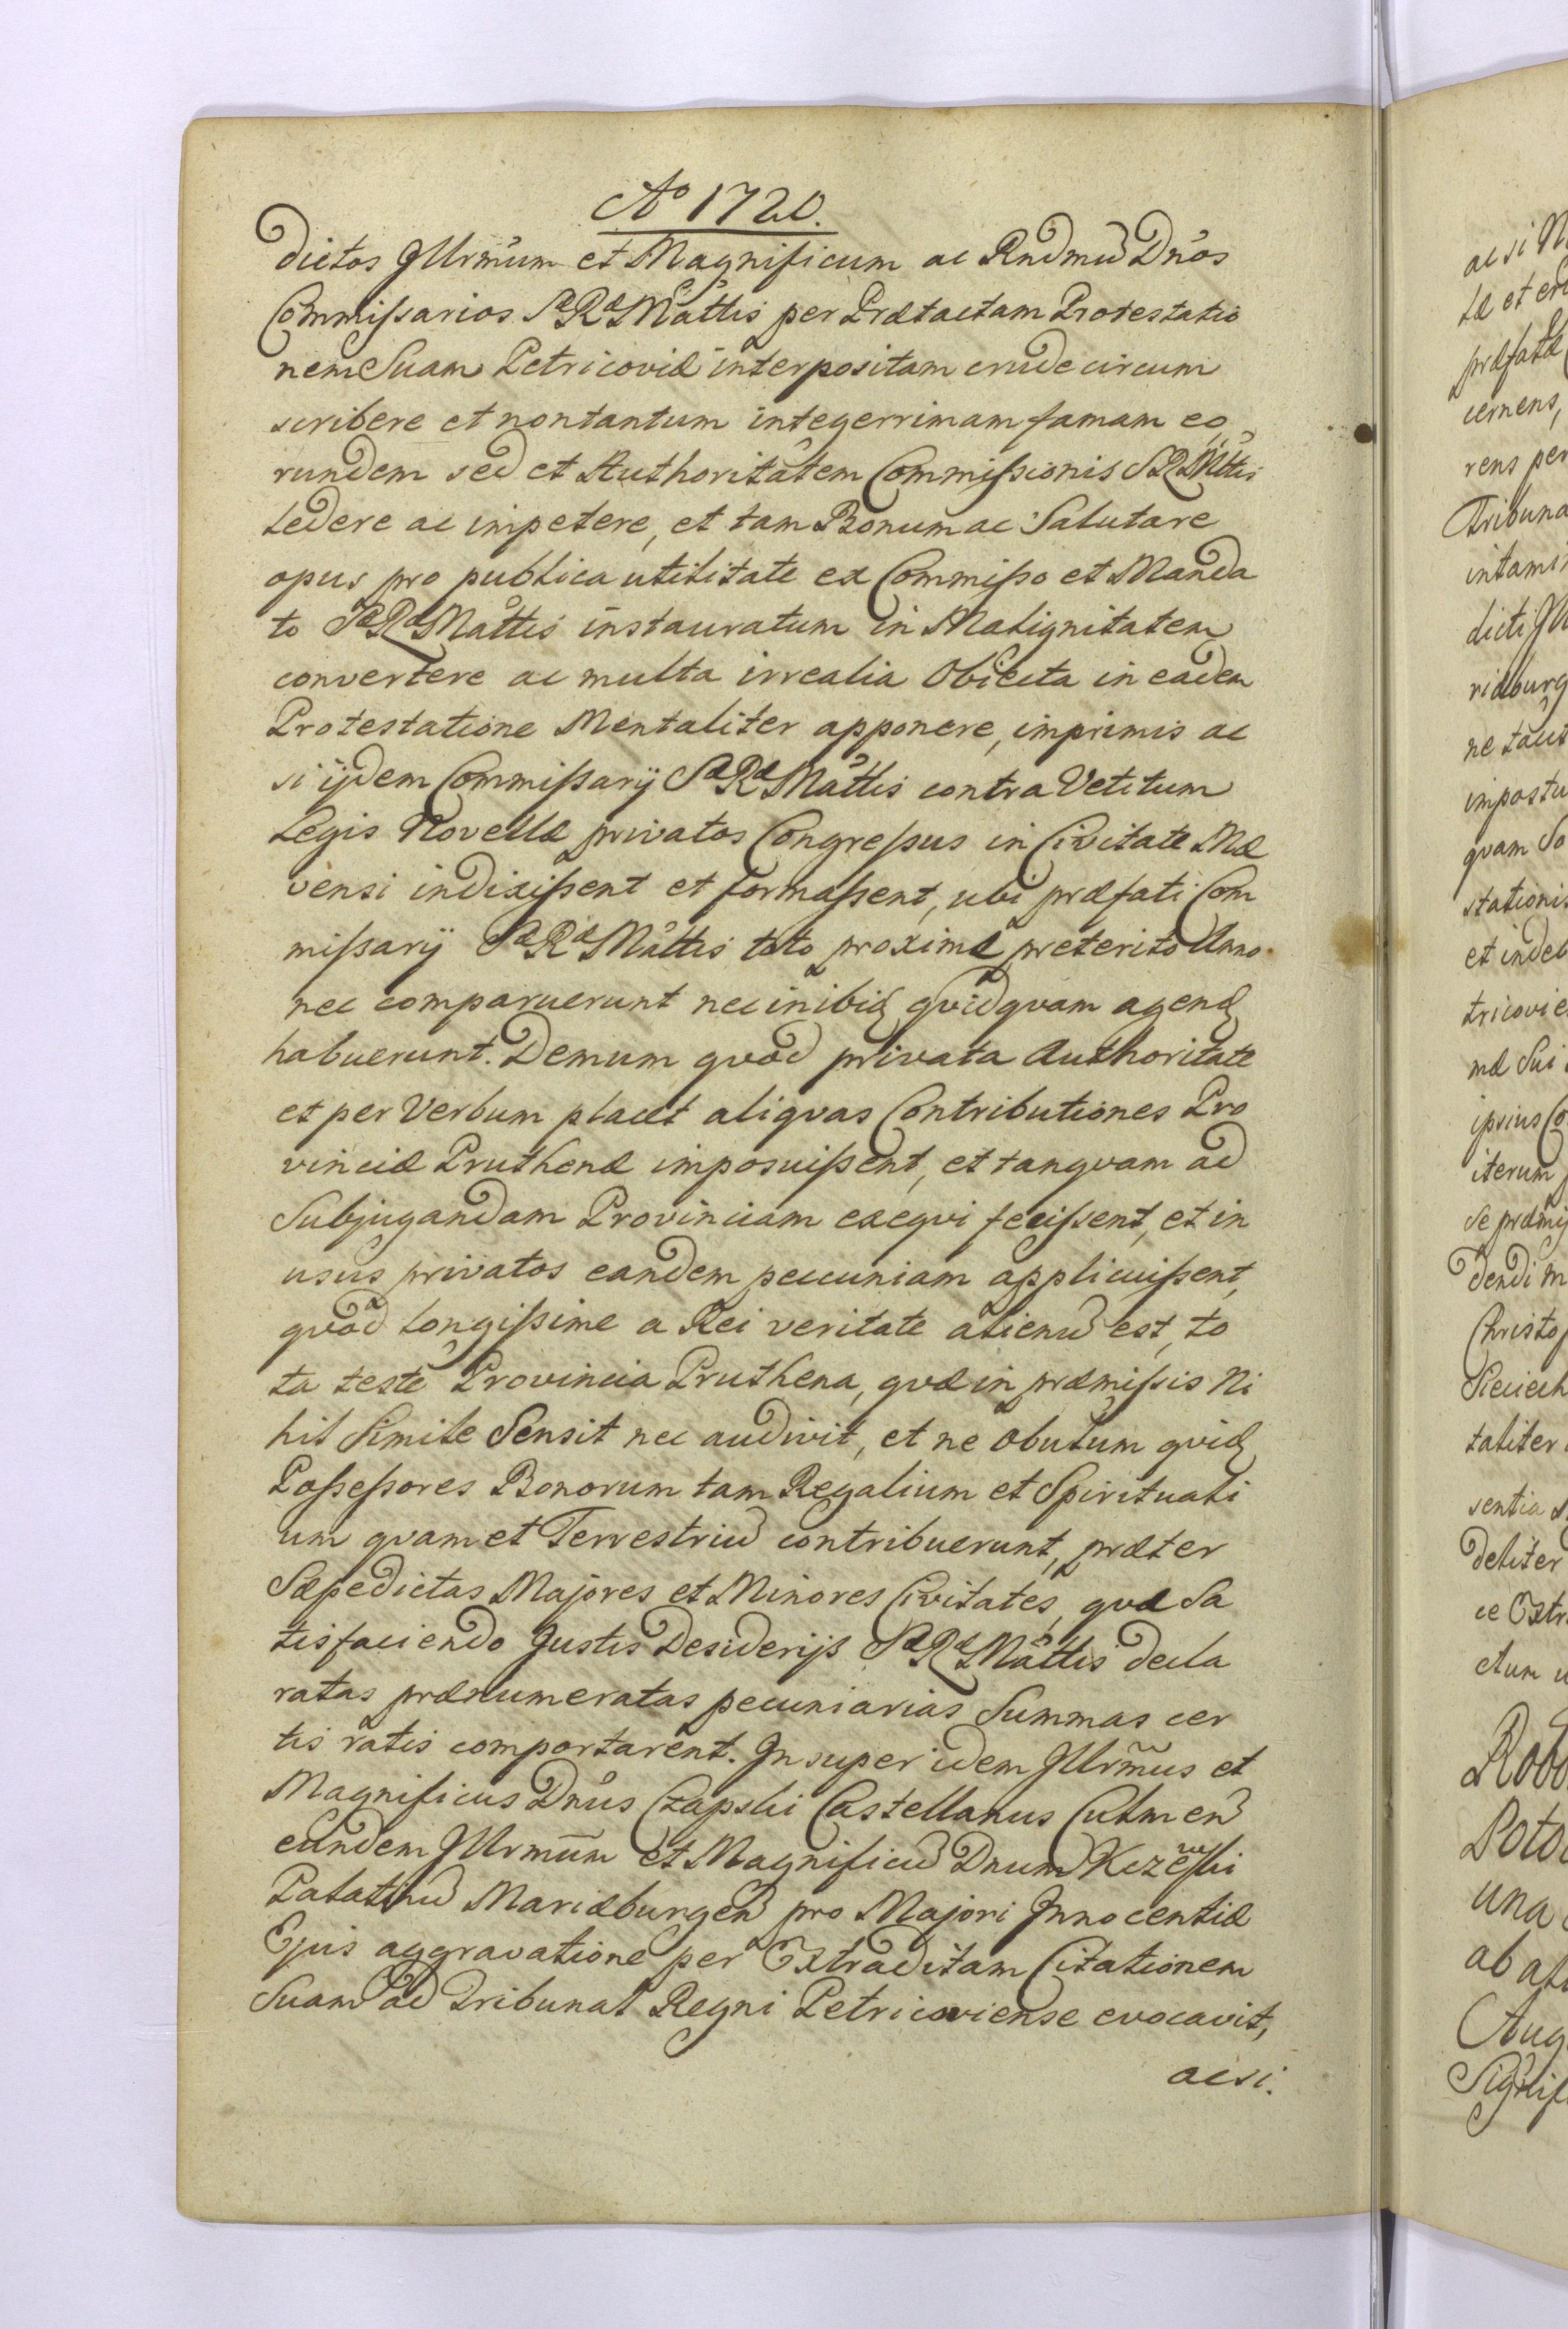 Aº 1720.
dictos Illrmum et Magnificum ac Rndmū Dnos
Commissarios Sæ Ræ Mattis per Prætactam Protestatio
nem Suam Petricoviæ interpositam crude circum
scribere et non tantum integerrimam famam eo
rundem sed et Authoritatem Commissionis S R Mttis
ledere ac impetere, et tam Bonum ac Salutare
opus pro publica utilitate ex Commisso et Manda
to Sæ Ræ Mattis instauratum in Malignitatem
convertere ac multa irrealia Obiecta in eadem
Protestatione Mentaliter apponere, imprimis ac
si ijdem Commissarij Sæ Ræ Mattis contra Vetitum
Legis Novellæ privatos Congressus in Civitate Mæ
vensi indixissent et formassent, ubi præfati Com
missarij Sæ Ræ Mattis toto proxime preterito Anno
nec comparuerunt nec inibiq quidquam agend
habuerunt. Demum quod privata Authoritate
et per Verbum placet aliquas Contributiones Pro
vinciæ Pruthenæ imposuissent, et tanquam ad
Subjugandam Provinciam exequi fecissent, et in
usus privatos eandem pecuniam applicuissent,
quod longissime a Rei veritate alienū est, to
ta teste Provincia Pruthena, quæ in præmissis Ni
hil Simile Sensit nec audivit, et ne Obulum quid
Possessores Bonorum tam Regalium et Spirituali
um quam et Terrestriū contribuerunt, præter
Sæpedictas Majores et Minores Civitates, quæ Sa
tisfaciendo Justis Desiderijs Sæ Ræ Mattis decla
ratas prænumeratas pecuniarias Summas cer
tis ratis comportarent. Insuper idem Illrmus et
Magnificus Dnus Czapski Castellanus Culmen
eundem Illrmum et Magnificū Dnum Kczewski
Palatinū Mariæburgen pro Majori Innocentiæ
Ejus aggravatione per Extraditam Citationem
Suam ad Tribunal Regni Petricoviense evocavit,
acsi.
ac si
et
præfatæ
cernens,
rens per
dicti
iterum
ab